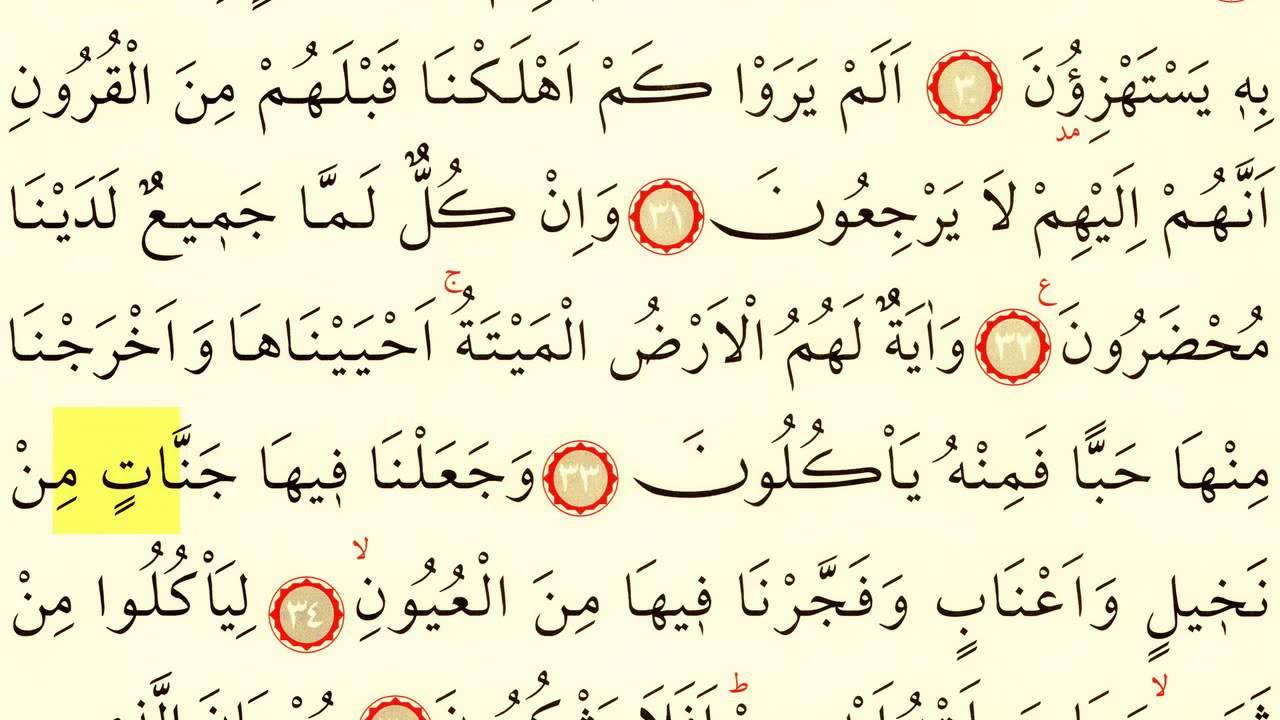 بِهٖ يَسْتَهْزِؤُنَ ٣٠ اَلَمْ يَرَوْا كَمْ اَهْلَكْنَا قَبْلَهُمْ مِنَ الْقُرُونِ
مد
اَنَّهُمْ اِلَيْهِمْ لَا يَرْجِعُونَ ٣١ وَاِنْ كُلٌّ لَمَّا جَمٖيعٌ لَدَيْنَا
مُحْضَرُونَ ع ٣٢ وَاٰيَةٌ لَهُمُ الْاَرْضُ الْمَيْتَةُ ج اَحْيَيْنَاهَا وَاَخْرَجْنَا
مِنْهَا حَبًّا فَمِنْهُ يَاْكُلُونَ ٣٣ وَجَعَلْنَا فٖيهَا جَنَّاتٍ مِنْ
نَخٖيلٍ وَاَعْنَابٍ وَفَجَّرْنَا فٖيهَا مِنَ الْعُيُونِ لا ٣٤ لِيَاْكُلُوا مِنْ